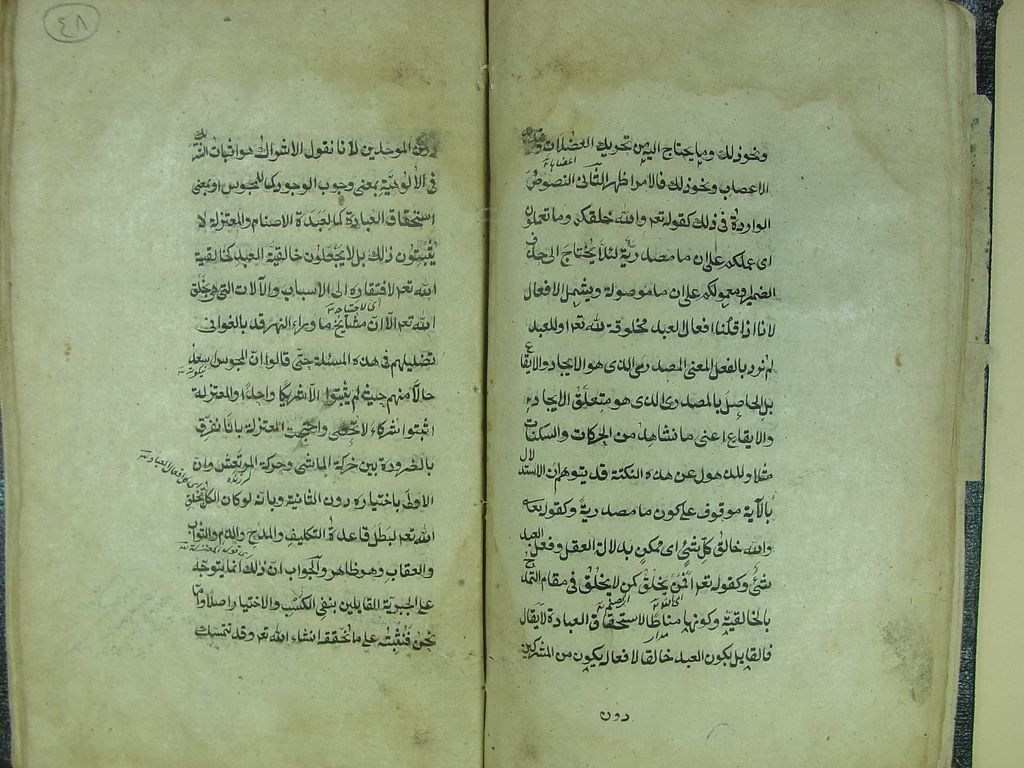 ونحو ذلك وما يحتاج اليه من تحريك العضلات وتمديد
الاعصاب ونحو ذلك فالامر اظهر الثانى النصوص
الواردة فى ذلك كقوله تعم والله خلقكم وما تعملون
اى عملكم على ان ما مصدرية لئلا يحتاج الى حذف
الضمير او معمولكم على ان ما موصولة ويشمل الافعال
لانا اذا قلنا افعال العبد مخلوقة لله تعم او للعبد
لم نرد بالفعل المعنى المصدرى الذى هو الايجاد والايقاع
بل الحاصل بالمصدر الذى هو متعلق الايجاد
والايقاع اعنى ما نشاهد من الحركات والسكنات
مثلا وللذهول عن هذه النكتة قد يتوهم ان الاستدلال
بالآية موقوف على كون ما مصدرية وكقوله تعم
والله خالق كل شئ اى ممكن بدلالة العقل وفعل العبد
شئ وكقوله تعم افمن يخلق كمن لا يخلق فى مقام التمدح
بالخالقية وكونها مناطا لاستحقاق العبادة لا يقال
مدار
فالقايل بكون العبد خالقا لافعاله يكون من المشركين
دون
٤٨
دون الموحدين لانا نقول الاشراك هو اثبات الشريك
فى الالوهية بمعنى وجوب الوجود كما للمجوس او بمعنى
استحقاق العبادة كما لعبدة الاصنام والمعتزلة لا
يثبتون ذلك بل لا يجعلون خالقية العبد كخالقية
الله تعم لافتقاره الى الاسباب والآلات التى هى بخلق
اى لاحتياجه
الله تعم الا ان مشايخ ما وراء النهر قد بالغوا فى
تضليلهم فى هذه المسئلة حتى قالوا ان المجوس اسعد
حالا منهم حيث لم يثبتوا الا شريكا واحدا والمعتزلة
اثبتوا شركاء لا تحصى واحتجت المعتزلة بانا نفرق
بالضرورة بين حركة الماشى وحركة المرتعش وان
الاولى باختياره دون الثانية وبانه لو كان الكل بخلق
الله تعم لبطل قاعدة التكليف والمدح والذم والثواب
والعقاب وهو ظاهر والجواب ان ذلك انما يتوجه
على الجبرية القايلين بنفى الكسب والاختيار اصلا واما
نحن فنثبته على ما نحققه انشاء الله تعم وقد نتمسك